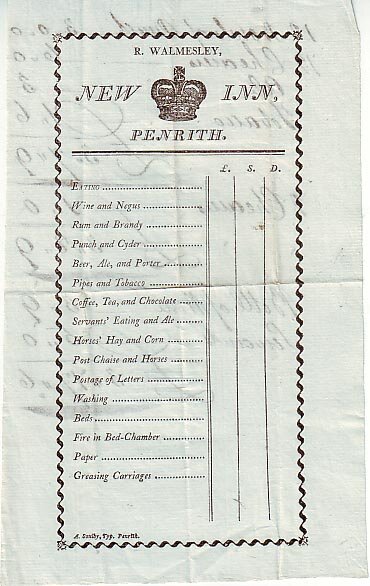 R. WALMESLEY,
NEW INN,
PENRITH.
£. S. D.
EATING
Wine and Negus
Rum and Brandy
Punch and Cyder
Beer, Ale, and Porter
Pipes and Tobacco
Coffee, Tea, and Chocolate
Servants' Eating and Ale
Horses' Hay and Corn
Post Chaise and Horses
Postage of Letters
Washing
Beds
Fire in Bed-Chamber
Paper
Greasing Carriages
A. Soulby, Typ. Penrith.